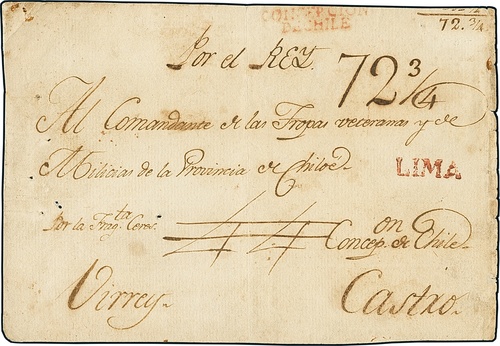 CONCEPCION
DE CHILE
72.¾
Por el REY.
72¾
Al Comandante de las Tropas veteranas y de
Milicias de la Provincia de Chiloé
LIMA
Por la Frag.ta Ceres.
44
Concep.on de Chile
Virrey
Castro